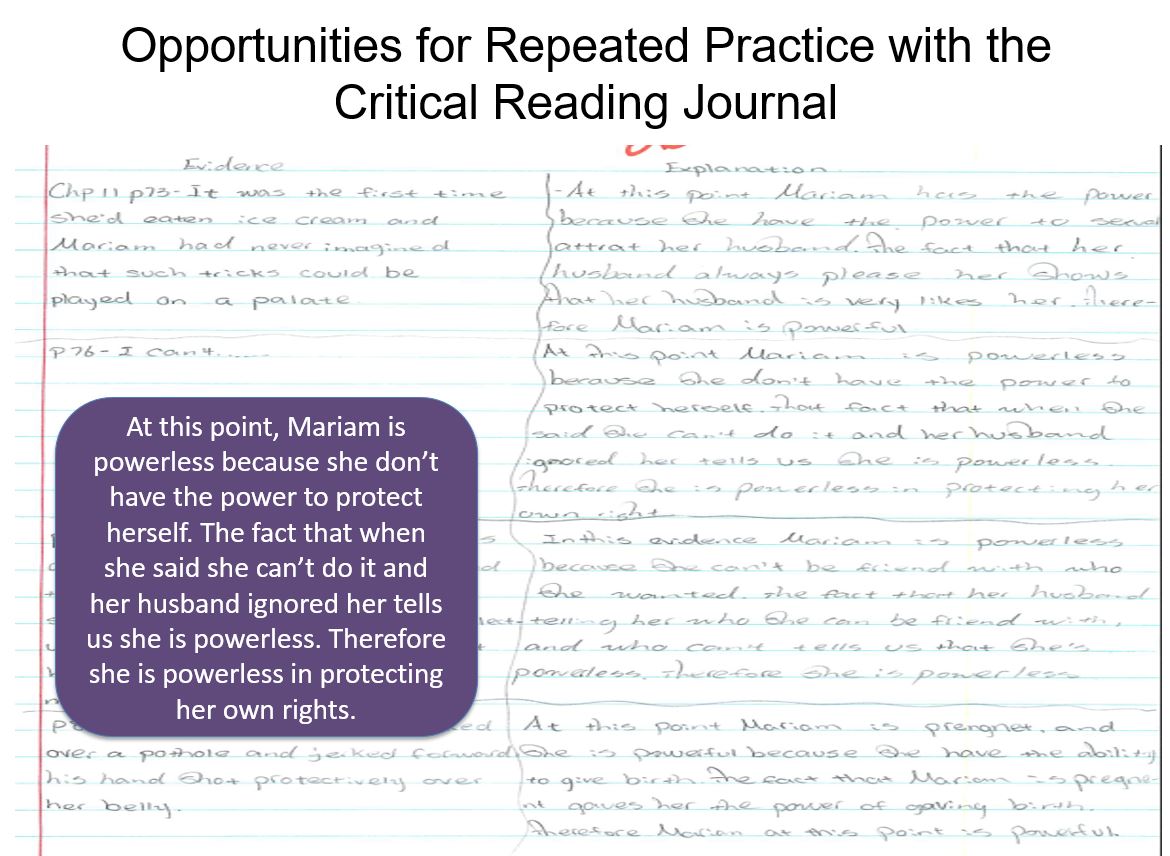 Opportunities for Repeated Practice with the
Critical Reading Journal
Evidence
Chp 11 p73- It was the first time
she'd eaten ice cream and
Mariam had never imagined
that such tricks could be
played on a palate
p76- I can't......
At this point, Mariam is
powerless because she don't
have the power to protect
herself. The fact that when
she said she can't do it and
her husband ignored her tells
us she is powerless. Therefore
she is powerless in protecting
her own rights.
over a pothole and jerked forward
his hand shot protectively over
her belly.
Explanation
-At this point Mariam has the power
because she have the power to sexual
attrat her husband. The fact that her
husband always please her shows
that her husband is very likes her. There-
fore Mariam is powerful
At this point Mariam is powerless
because she don't have the power to
protect herself. That fact that when she
said she can't do it and her husband
ignored her tells us she is powerless.
Therefore she is powerless in protecting her
own right
In this evidence Mariam is powerless
because she can't be friend with who
she wanted. The fact that her husband
telling her who she can be friend with,
and who can't tells us that she's
powerless. Therefore she is powerless
At this point Mariam is prengnet, and
she is powerful because she have the ability
to give birth. The fact that Mariam is pregne-
nt gaves her the power of gaving birth.
Therefore Mariam at this point is powerful.